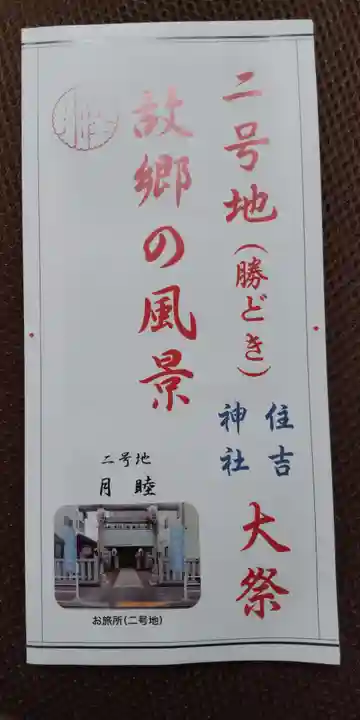 二号地(勝どき)住吉神社 大祭
故郷の風景
二号地
月 睦
お旅所(二号地)